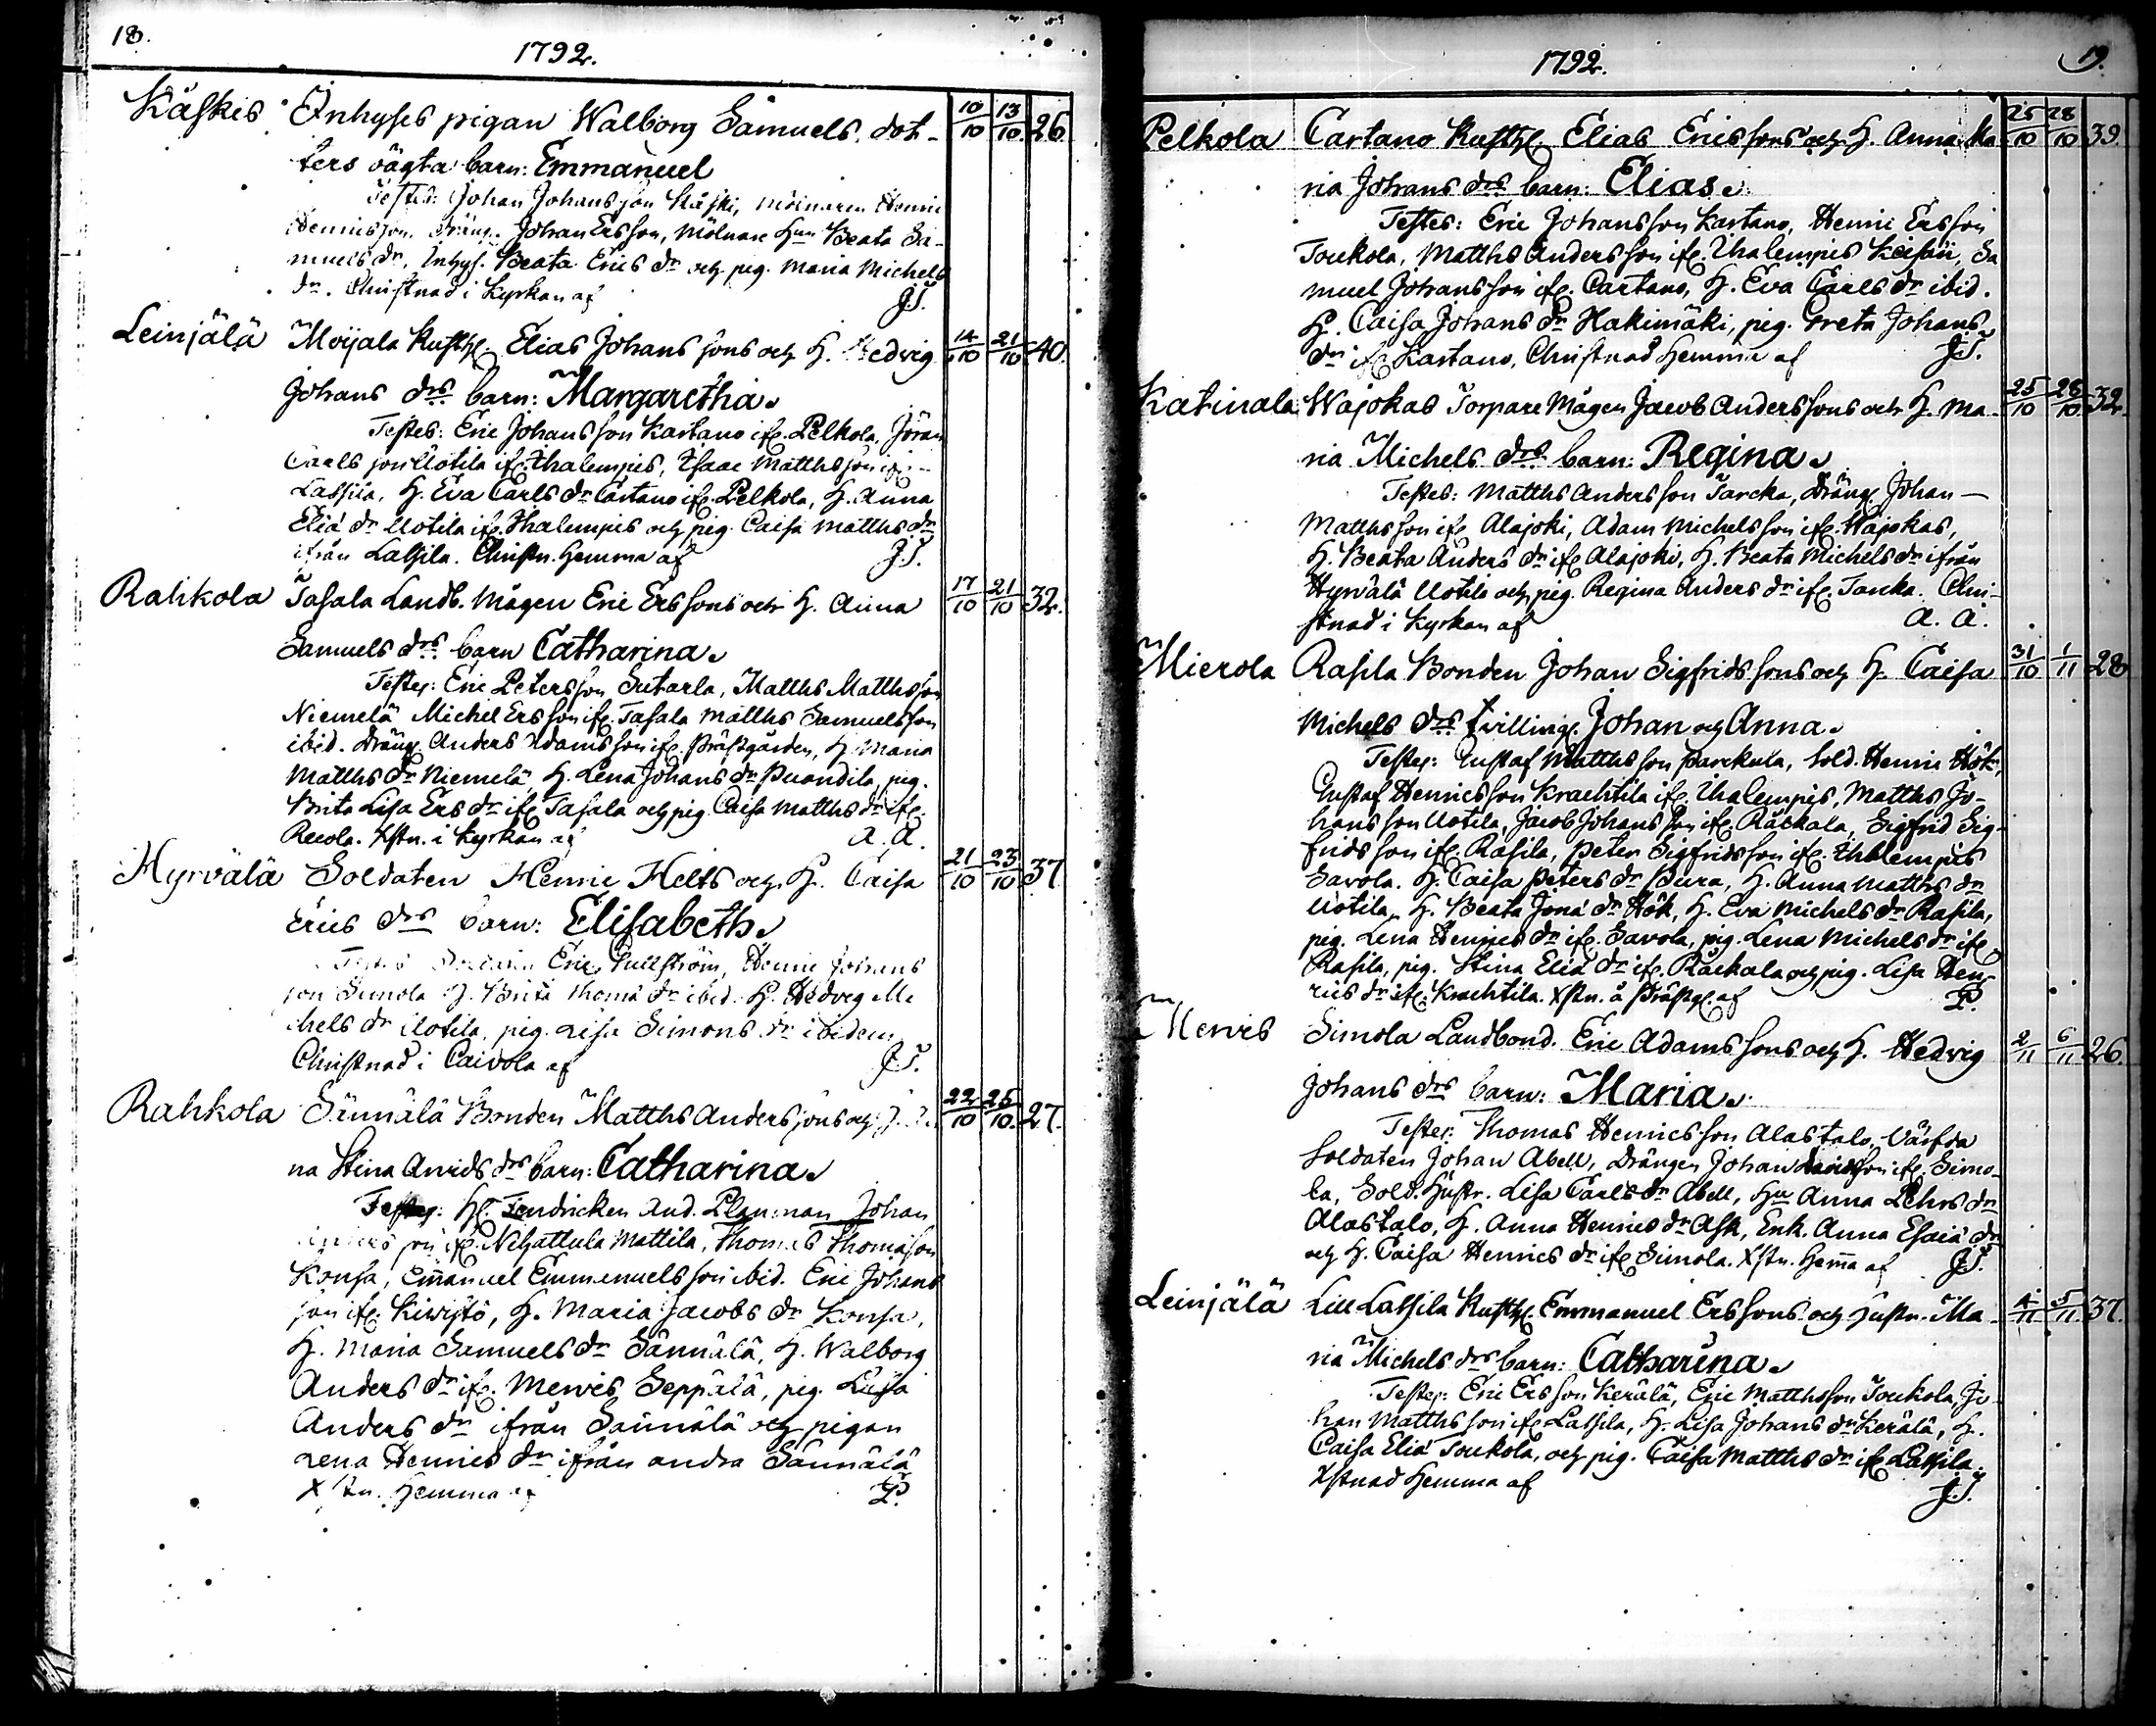 18.
1792.
Käskis Inhyses pigan Walborg Samuels dot- 10/10 13/10 26
ters oägta barn: Emmanuel
Testes: Johan Johansson Käski, mölnaren Henric
Henricsson, Dräng. Johan Ersson, Mölnare Hun Beata Sa-
muels dr, Inhys. Beata Erics dr och pig. Maria Michels
dr. Christnad i Kyrkan af J.T.
Leinjälä Moijala Rusth. Elias Johanssons och H. Hedvig 14/10 21/10 40.
Johans drs barn: Margaretha.
Testes: Eric Johansson Kartano ifr. Pelkola, Jöran
Carlsson Uotila ifr. Ihalempis, Isaac Matthsson
Lassila, H. Eva Carls dr Cartano ifr. Pelkola, H. Anna
Eliæ dr Uotila ifr. Ihalempis och pig. Caisa Matths dr
ifrån Lassila. Christn. hemma af J.T.
Rahkola Tasala Landb. Mågen Eric Erssons och H. Anna 17/10 21/10 32.
Samuels drs barn Catharina.
Testes: Eric Petersson Sutarla, Matths Matthsson
Niemelä Michel Ersson ifr. Tasala Matths Samuelsson
ibid. Dräng. Anders Adamsson ifr. Prästgården, H. Maria
Matths dr Niemelä, H. Lena Johans dr Puandila, pig.
Brita Lisa Ers dr ifr. Tasala och pig. Caisa Matths dr ifr.
Recola. Xstn. i Kyrkan af A. A.
Hyrvälä Soldaten Henric Helts och H. Caisa 21/10 23/10 37
Erics drs barn: Elisabeth.
Testes Eric Gullström, Henric Johans
son Simola H. Brita Thomæ dr ibid. H. Hedvig Mi
chels dr Uotila, pig. Lisa Simons dr ibidem
Christnad i Caivola af J.T.
Rahkola Sännälä Bonden Matths Anderssons och 22/10 25/10. 27.
na Stina Arvids drs barn: Catharina.
Testes: H. Fendricken And. Planman Johan
Anders son ifr. Nehattula Mattila, Thomas Thomasson
Konsa, Emanuel Emmenuelsson ibid. Eric Johans
son ifr. Kivistö, H. Maria Jacobs dr Konsa,
H. Maria Samuels dr Sännälä, H. Walborg
Anders dr ifr. Mervis Seppälä, pig. Lisa
Anders dr ifrån Sännälä och pigan
Lena Henrics dr ifrån andra Sännälä
Xstn. hemma af P.
1792. 19.
Pelkola Cartano Rusth. Elias Ericssons och H. Anna Ma- 25/10 28/10 39.
ria Johans drs barn: Elias.
Testes: Eric Johansson Kartano, Henric Ersson
Toukola, Matths Andersson ifr. Ihalempis Keisari, Sa
muel Johansson ifr. Cartano, H. Eva Carls dr ibid.
H. Caisa Johans dr Hakimäki, pig. Greta Johans
dr ifr. Kartano, Christnad hemma af J.T.
Katinala Wajokas Torpare Mågen Jacob Anderssons och H. Ma- 25/10 28/10 32.
ria Michels drs barn: Regina.
Testes: Matths Andersson Tarcka, Dräng. Johan
Matthsson ifr. Alajoki, Adam Michelsson ifr. Wajokas,
H. Beata Anders dr ifr. Alajoki, H. Beata Michels dr ifrån
Hyrvälä Uotila och pig. Regina Anders dr ifr. Tarcka. Chri-
stnad i Kyrkan af A. A.
Mierola Rasila Bonden Johan Sigfridssons och H. Caisa 31/10 1/11 28
Michels drs tvilling. Johan och Anna.
Testes: Gustaf Matthsson Parckula, Sold. Henric Hök,
Gustaf Henricsson Krachtila ifr. Ihalempis, Matths Jo-
hansson Uotila, Jacob Johansson ifr. Räckala, Sigfrid Sig-
fridsson ifr. Rasila, Peter Sigfridsson ifr. Ihalempis
Savola. H. Caisa Peters dr Pura, H. Anna Matths dr
Uotila, H. Beata Jonæ dr Hök, H. Eva Michels dr Rasila,
pig. Lena Henrics dr ifr. Savola, pig. Lena Michels dr ifr.
Rasila, pig. Stina Eliæ dr ifr. Räckala och pig. Lisa Hen-
rics dr ifr. Krachtila. Xstn. å Prästg. af P.
Mervis Simola Landbond. Eric Adamssons och H. Hedvig 2/11 6/11 26.
Johans drs barn: Maria.
Testes: Thomas Henricsson Alastalo, Värfda
Soldaten Johan Abell, Drängen Johan Davidsson ifr. Simo-
la, Sold. Hustr. Lisa Carls dr Abell, Hu Anna Pehrs dr
Alastalo, H. Anna Henrics dr Ask, Enk. Anna Esaiæ dr
och H. Caisa Henrics dr ifr. Simola. Xstn. hema af J.T.
Leinjälä Lill Lassila Rusth. Emmanuel Erssons och Hustr. Ma- 4/11 5/11 37.
ria Michels drs barn: Catharina.
Testes: Eric Ersson Kerälä, Eric Matthsson Toukola, Jo-
han Matthsson ifr. Lassila, H. Lisa Johans dr Kerälä, H.
Caisa Eliæ Toukola, och pig. Caisa Matths dr ifr. Lassila.
Xstnad hemma af J.T.